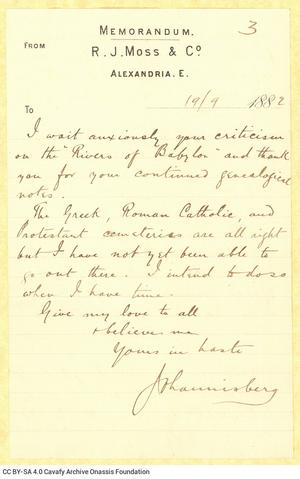 3
MEMORANDUM.
FROM
R. J. MOSS & Cº
ALEXANDRIA. E.
TO
19/9 1882
I wait anxiously your criticism
on the "Rivers of Babylon" and thank
you for your continued genealogical
notes.
The Greek, Roman Catholic, and
Protestant cemeteries are all right
but I have not yet been able to
go out there. I intend to do so
when I have time.
Give my love to all
& believe me
Yours in haste
Johannisberg
CC BY-SA 4.0 Cavafy Archive Onassis Foundation